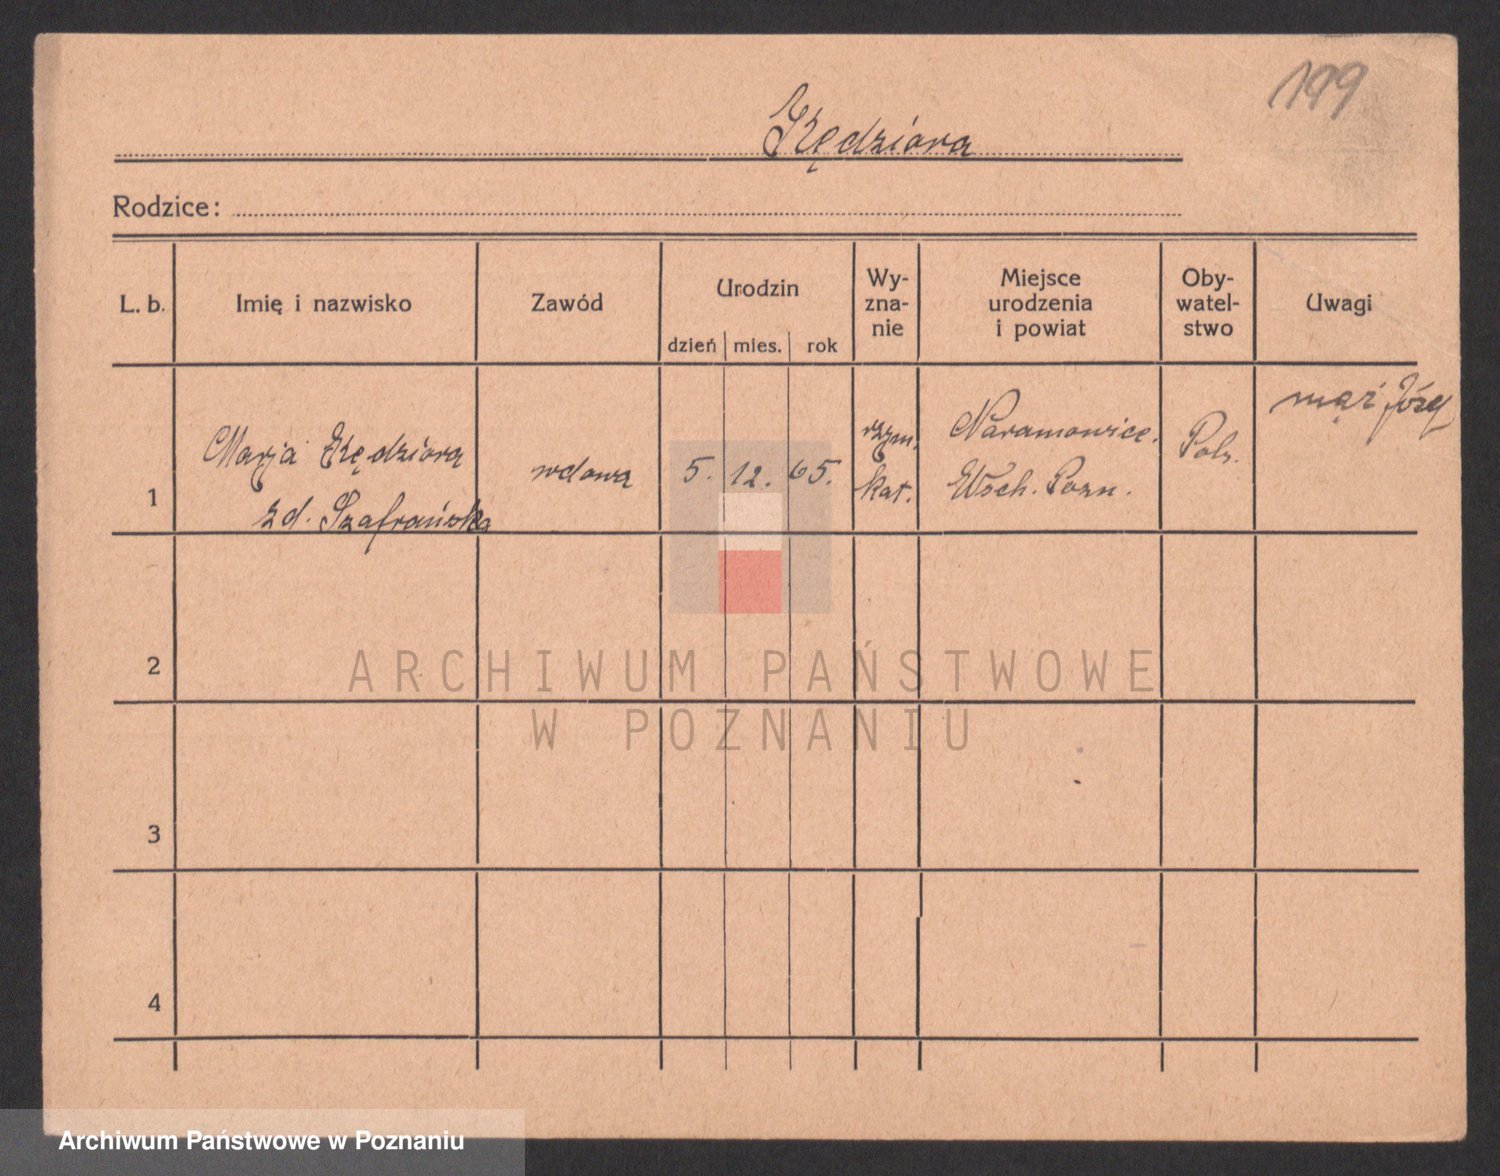 199
Kędziora
Rodzice:
L. b.
Imię i nazwisko
Zawód
Urodzin
dzień
mies.
rok
Wy-
zna-
nie
Miejsce
urodzenia
i powiat
Oby-
watel-
stwo
Uwagi
1
Marja Kędziora
zd. Szafrańska
wdowa
5.
12.
65.
rzym.
kat.
Naramowice.
Wsch. Pozn.
Pols.
mąż Józef
2
3
4
ARCHIWUM PAŃSTWOWE
W POZNANIU
Archiwum Państwowe w Poznaniu